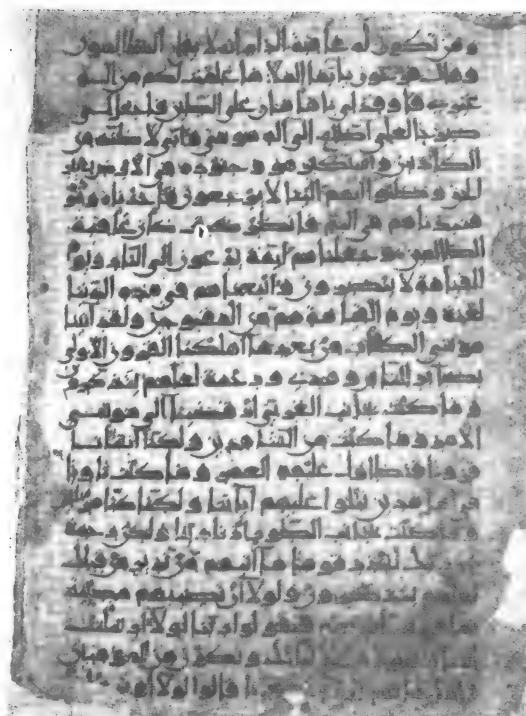 ومن تكون له عاقبة الدار انه لا يفلح الظالمون
وقال فرعون يا ايها الملا ما علمت لكم من اله
غيري فاوقد لي يا هامان على الطين فاجعل لي
صرحا لعلي اطلع الى اله موسى واني لاظنه من
الكاذبين واستكبر هو وجنوده في الارض بغير
الحق وظنوا انهم الينا لا يرجعون فاخذناه وجنو
فنبذناهم في اليم فانظر كيف كان عاقبة
الظالمين وجعلناهم ايمة يدعون الى النار ويوم
القيامة لا ينصرون واتبعناهم في هذه الدنيا
لعنة ويوم القيامة هم من المقبوحين ولقد اتينا
موسى الكتاب من بعد ما اهلكنا القرون الاولى
بصاير للناس وهدى ورحمة لعلهم يتذكرون
وما كنت بجانب الغربي اذ قضينا الى موسى
الامر وما كنت من الشاهدين ولكنا انشانا
قرونا فتطاول عليهم العمر وما كنت ثاويا
في اهل مدين تتلوا عليهم اياتنا ولكنا كنا مرسلين
وما كنت بجانب الطور اذ نادينا ولكن رحمة
لتنذر قوما ما اتيهم من نذير من قبلك
لعلهم يتذكرون ولولا ان تصيبهم مصيبة
فيقولوا ربنا لولا ارسلت
الينا ونكون من المومنين
قالوا لولا اوتي